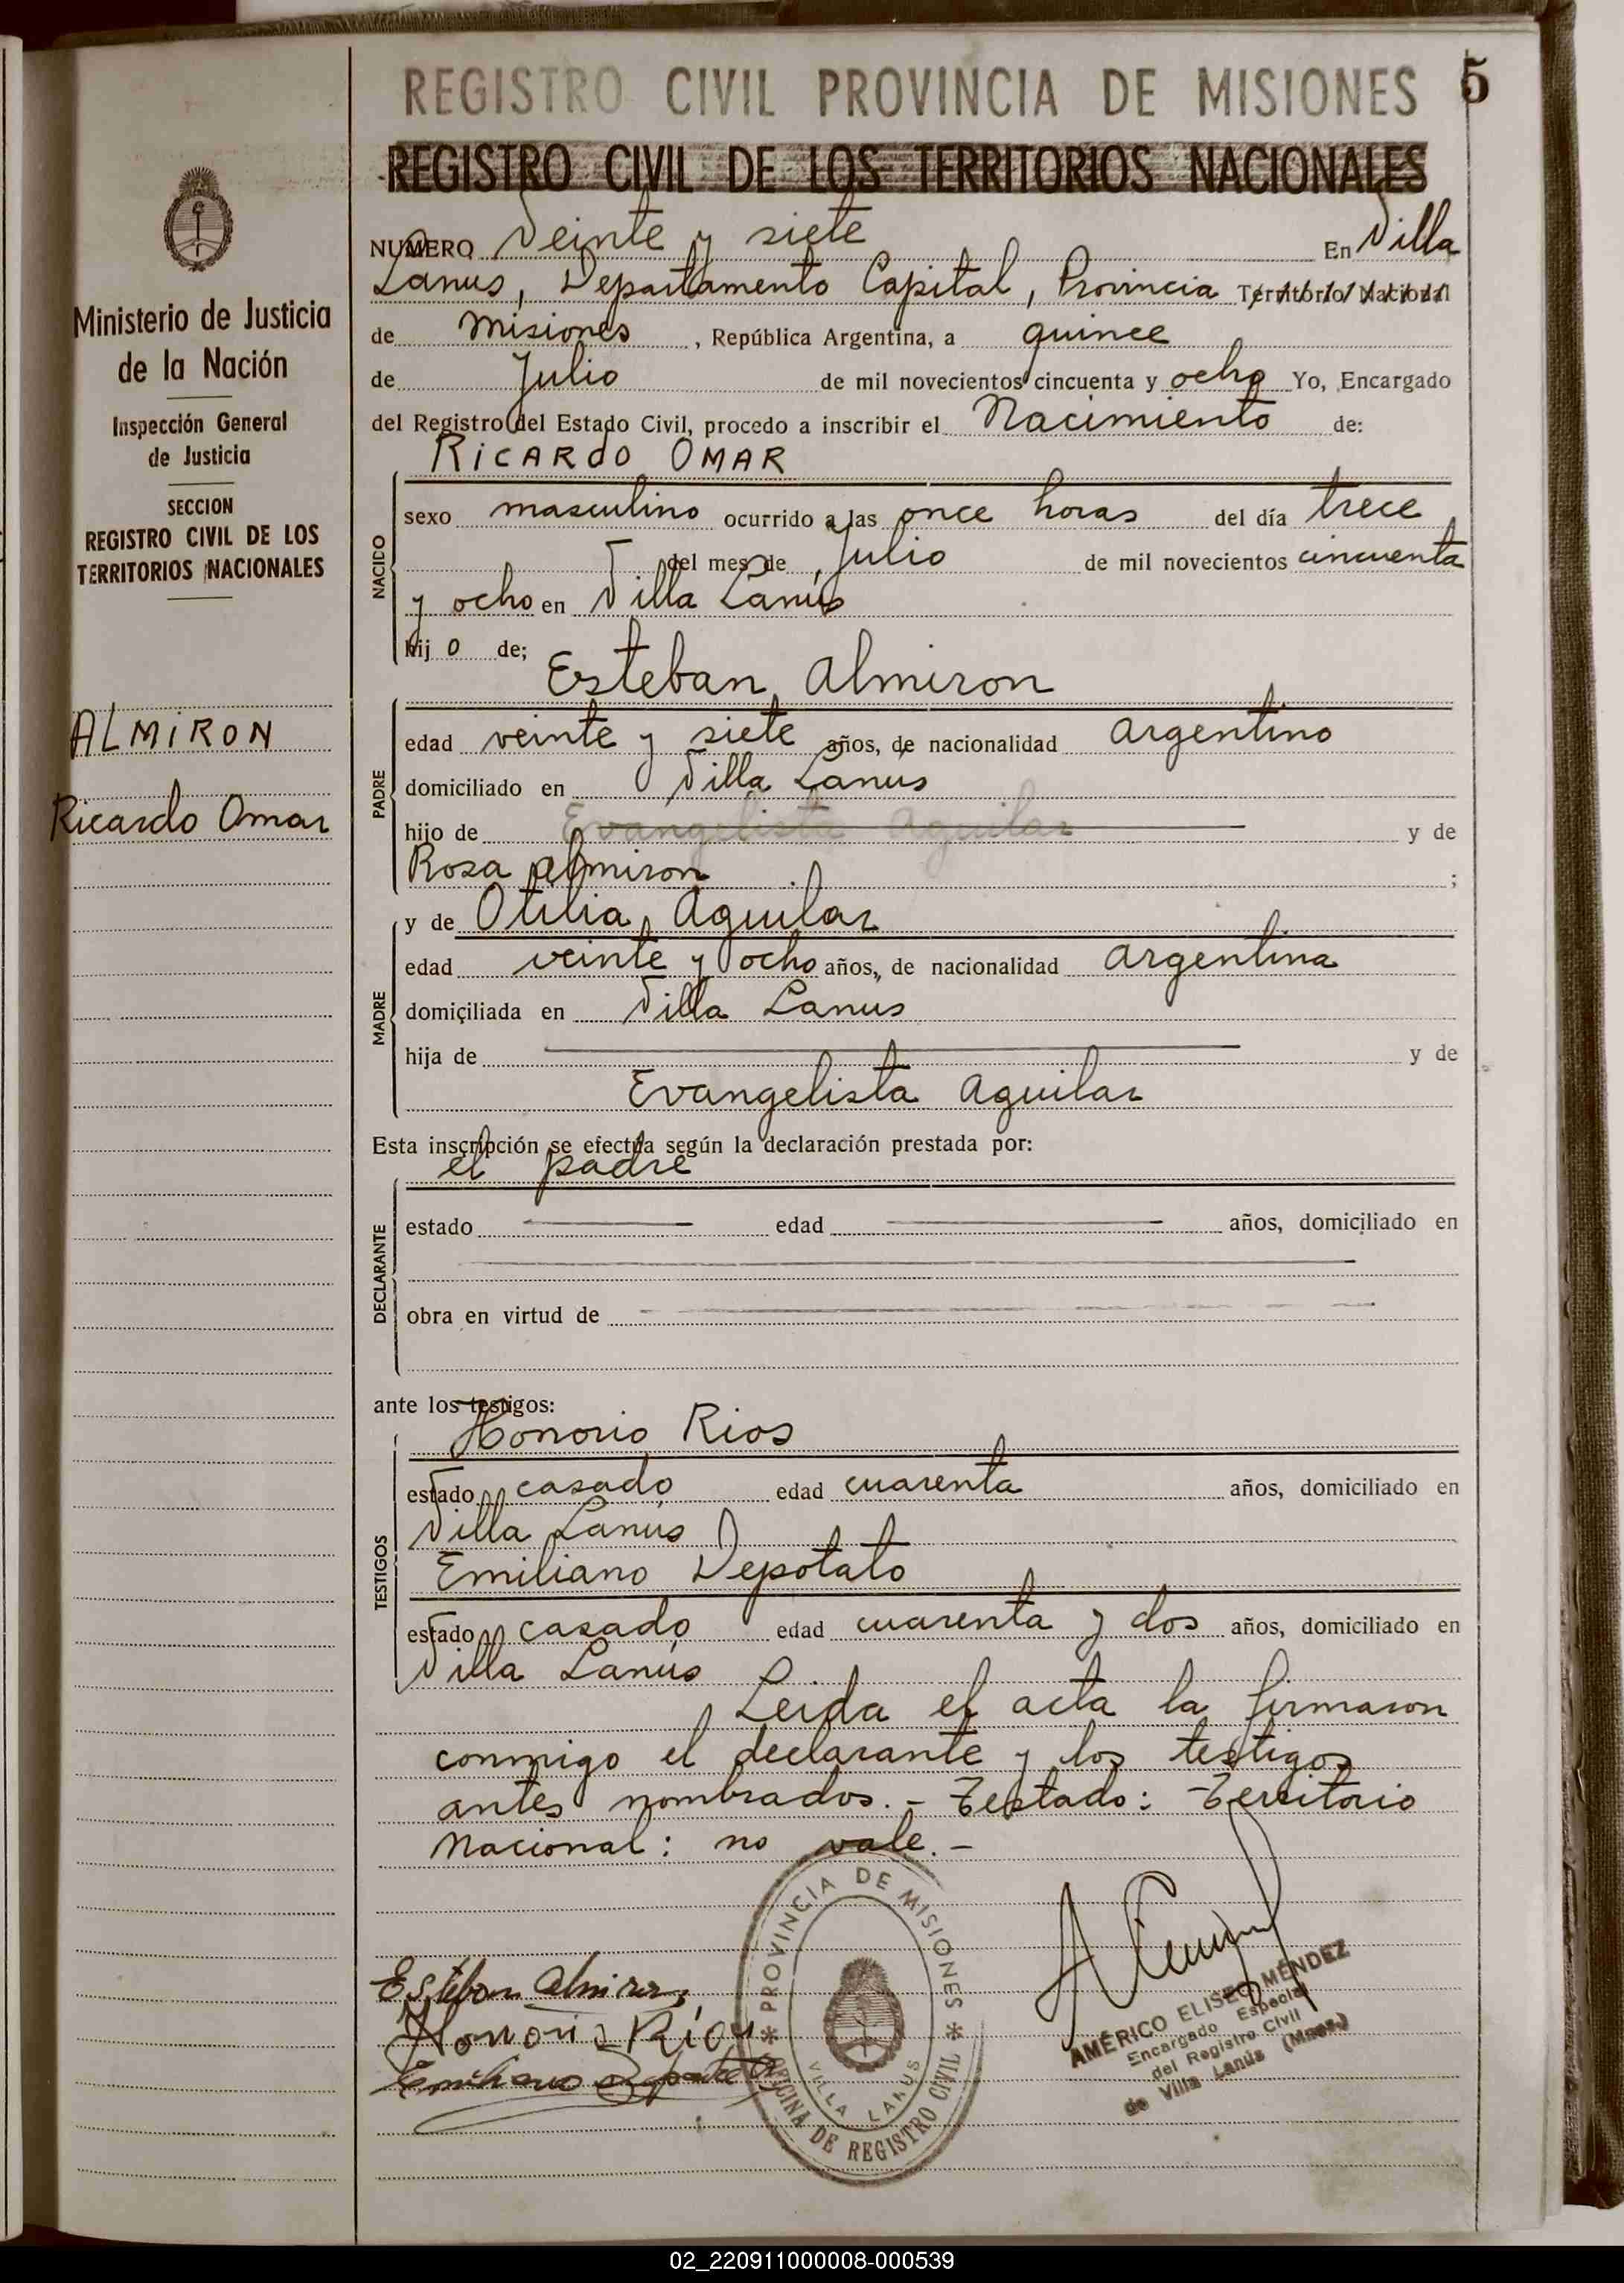 REGISTRO CIVIL PROVINCIA DE MISIONES
5
REGISTRO CIVIL DE LOS TERRITORIOS NACIONALES
Ministerio de Justicia
de la Nación
Inspección General
de Justicia
SECCION
REGISTRO CIVIL DE LOS
TERRITORIOS NACIONALES
ALMIRON
Ricardo Omar
NUMERO Veinte y siete En Villa
Lanus, Departamento Capital, Provincia Territorio Nacional
de Misiones, República Argentina, a quince
de Julio de mil novecientos cincuenta y ocho Yo, Encargado
del Registro del Estado Civil, procedo a inscribir el Nacimiento de:
RICARDO OMAR
NACIDO
sexo masculino ocurrido a las once horas del día trece
del mes de Julio de mil novecientos cincuenta
y ocho en Villa Lanús
hijo de;
Esteban Almiron
PADRE
edad veinte y siete años, de nacionalidad Argentino
domiciliado en Villa Lanus
hijo de Evangelista Aguilar y de
Rosa Almiron ;
y de Otilia Aguilar
MADRE
edad veinte y ocho años, de nacionalidad Argentina
domiciliada en Villa Lanus
hija de y de
Evangelista Aguilar
Esta inscripción se efectúa según la declaración prestada por:
el padre
DECLARANTE
estado edad años, domiciliado en
obra en virtud de
ante los testigos:
Honorio Rios
TESTIGOS
estado casado edad cuarenta años, domiciliado en
Villa Lanús
Emiliano Depotato
estado casado edad cuarenta y dos años, domiciliado en
Villa Lanús
Leida el acta la firmaron
conmigo el declarante y los testigos
antes nombrados.- Testado: Territorio
Nacional: no vale.-
Esteban Almiron
Honorio Ríos
Emiliano
PROVINCIA DE MISIONES
OFICINA DE REGISTRO CIVIL
VILLA LANUS
AMÉRICO ELISEO MÉNDEZ
Encargado Especial
del Registro Civil
de Villa Lanús (Mnes.)
02_220911000008-000539